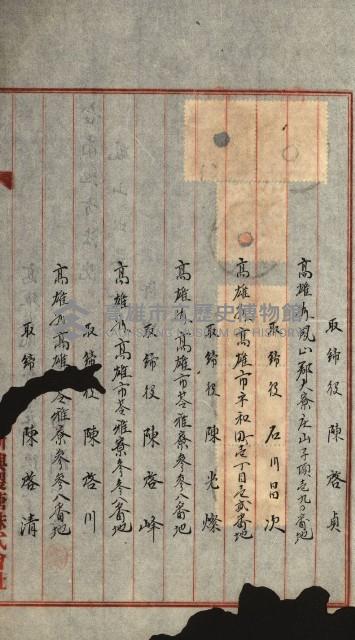 取締役 陳啓貞
高雄州鳳山郡大寮庄山子頂壱九〇番地
取締役 石川昌次
高雄州高雄市平和町壱丁目壱貳番地
取締役 陳光燦
高雄州高雄市苓雅寮參參八番地
取締役 陳啓峰
高雄州高雄市苓雅寮參參八番地
取締役 陳啓川
高雄州高雄市苓雅寮參參八番地
取締役 陳啓清
興製糖株式會社
高雄市立歷史博物館